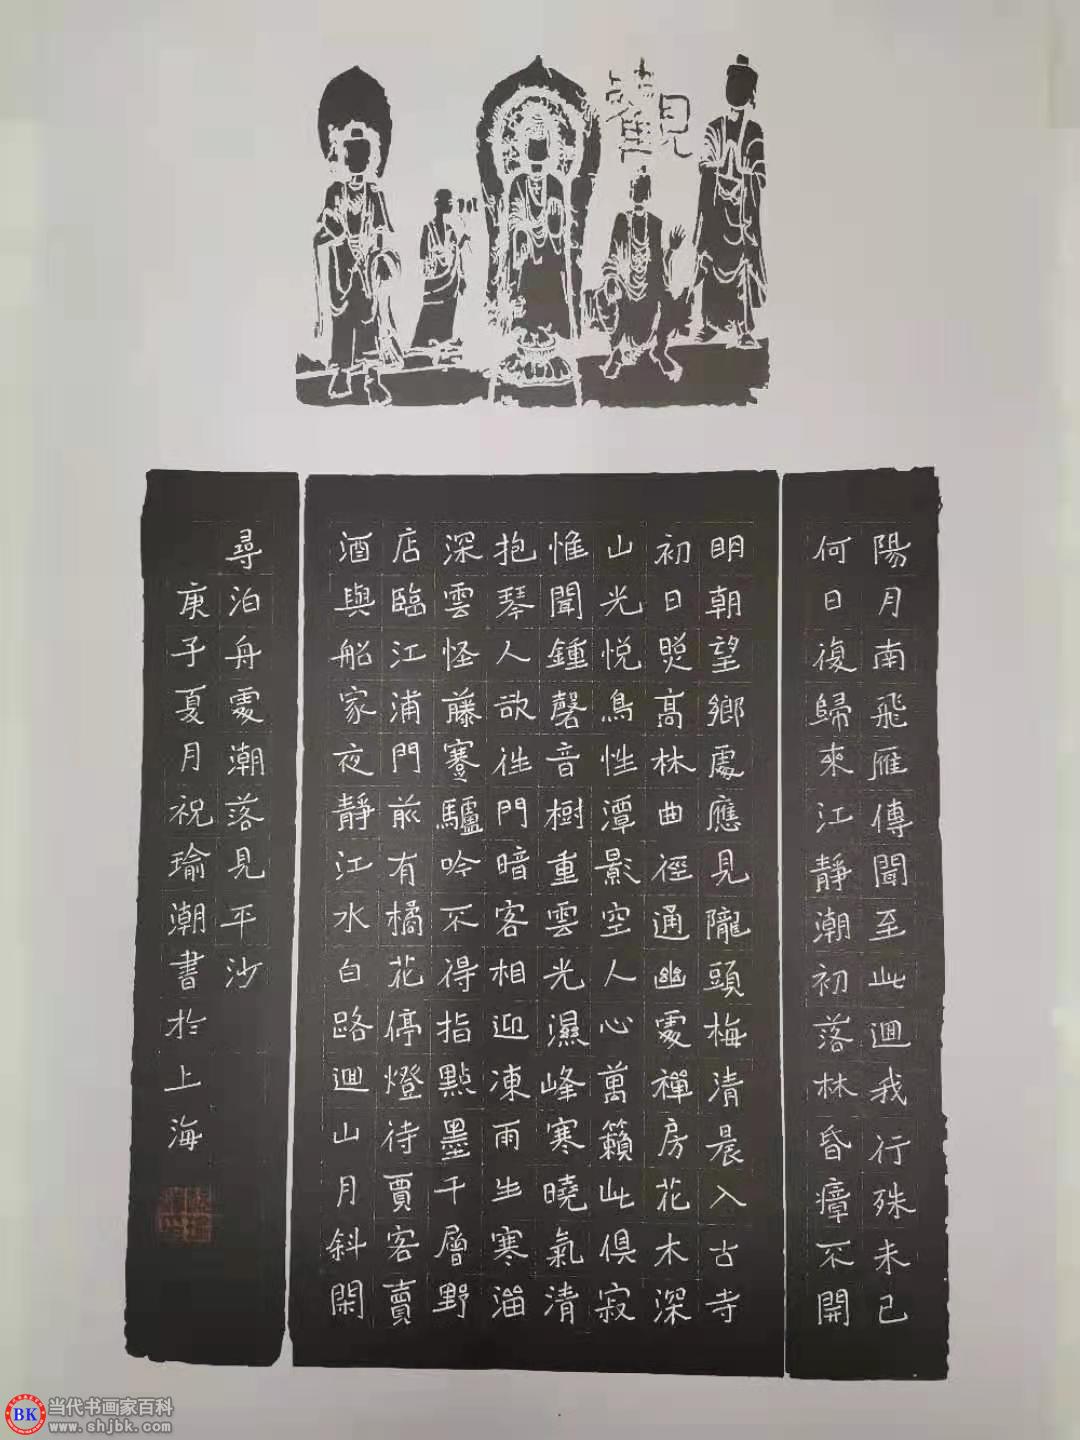 觀
陽月南飛雁傳聞至此迴我行殊未已
何日復歸來江靜潮初落林昏瘴不開
明朝望鄉處應見隴頭梅清晨入古寺
初日照高林曲徑通幽處禪房花木深
山光悅鳥性潭影空人心萬籟此俱寂
惟聞鍾磬音樹重雲光濕峰寒曉氣清
抱琴人欲往門暗客相迎凍雨生寒溜
深雲怪藤蹇驢吟不得指點墨千層野
店臨江浦門前有橘花停燈待賈客賣
酒與船家夜靜江水白路迴山月斜閑
尋泊舟處潮落見平沙
庚子夏月祝瑜潮書於上海
BK 当代书画家百科
www.shjbk.com